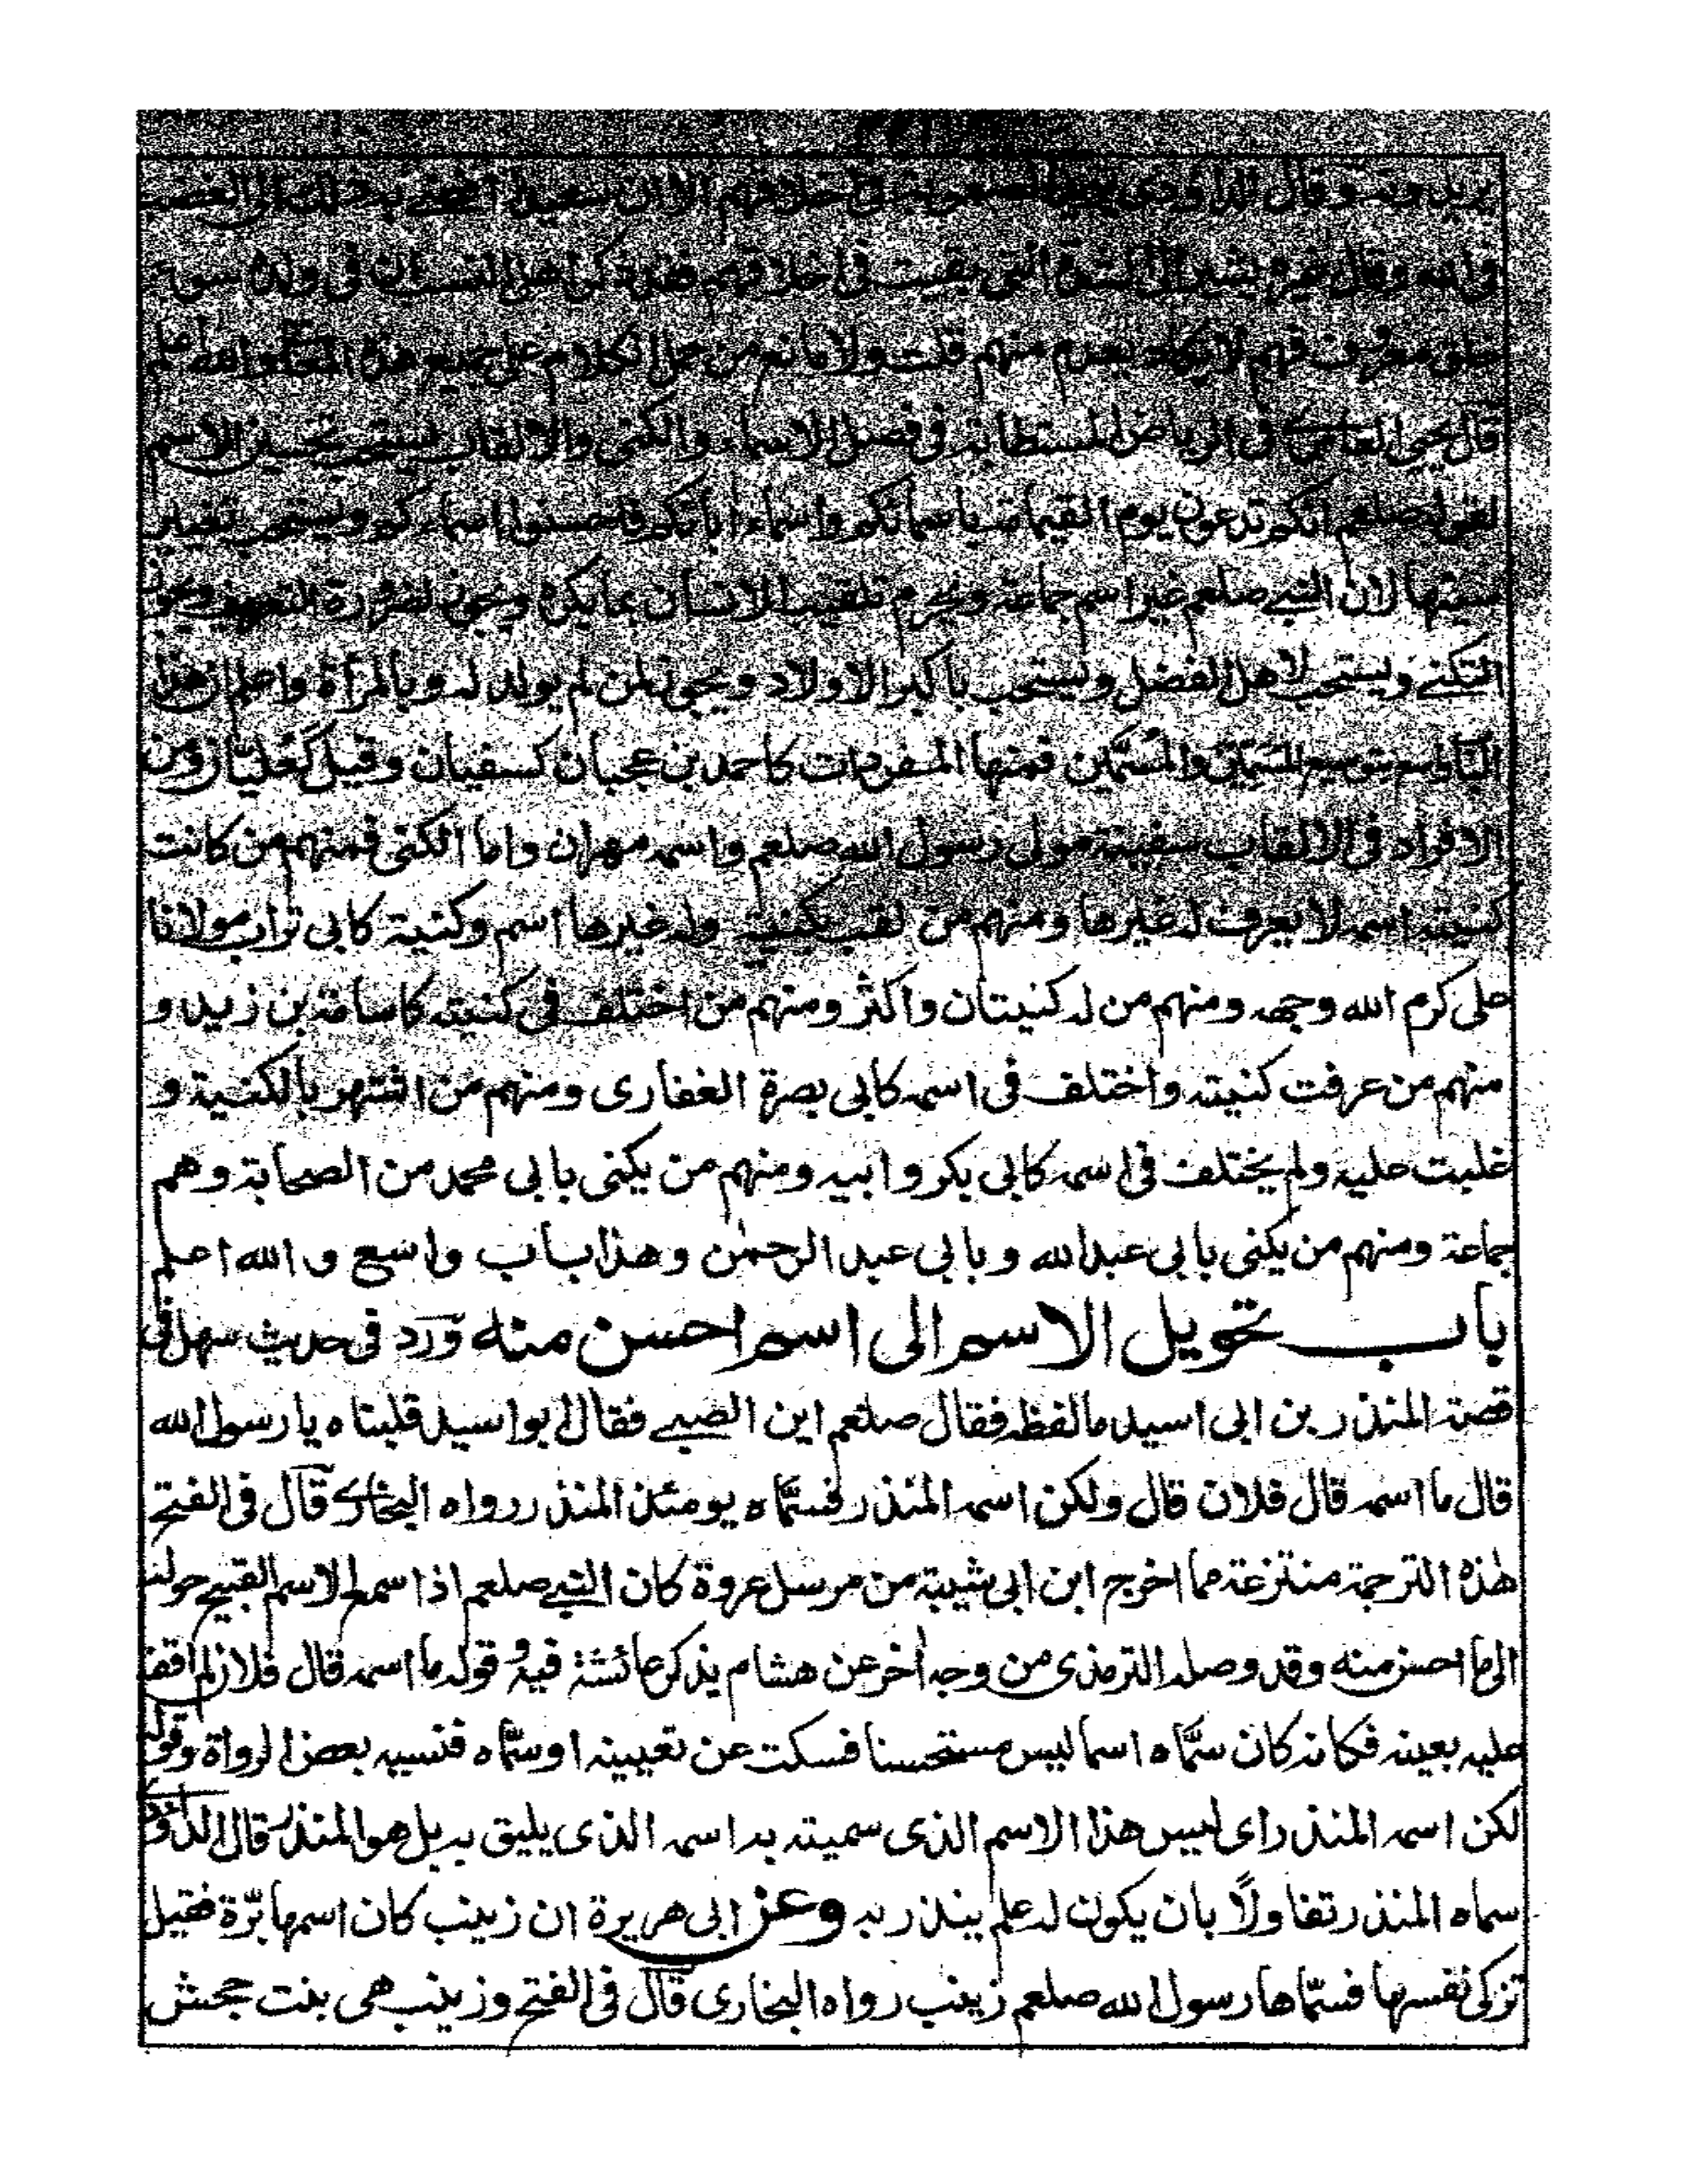 يريد ونه وقال الداودي يريد الصعوبة في اخلاقهم الا ان سعيدا افضى به ذلك الى الغضب
في الله وقال غيره يشير الى الشدة التي بقيت في اخلاقهم فقد ذكر اهل النسب ان في ولده سوء
خلق معروف فيهم لا يكاد يعدم منهم قلت ولا مانع من حمل الكلام على جميع هذه المعاني والله اعلم
قال يحيى العامري في الرياض المستطابة في فصل الاسماء والكنى والالقاب يستحب تحسين الاسم
لقوله صلعم انكم تدعون يوم القيامة باسمائكم واسماء ابائكم فاحسنوا اسماءكم ويستحب تغيير
قبيحها لان النبي صلعم غير اسم جماعة ويحرم تلقيب الانسان بما يكره ويجوز لضرورة التعريف ويجوز
التكني ويستحب لاهل الفضل ويستحب باكبر الاولاد ويجوز لمن لم يولد له وبالمرأة واعلم ان هذا
الباب واسع المسمين فمنها المفردات كاحمد بن عجيان كسفيان وقيل كعليان ومن
الافراد في الالقاب سفينة مولى رسول الله صلعم واسمه مهران واما الكنى فمنهم من كانت
كنيته اسمه لا يعرف له غيرها ومنهم من لقب بكنية وله غيرها اسم وكنية كابى تراب مولانا
على كرم الله وجهه ومنهم من له كنيتان واكثر ومنهم من اختلف فى كنيته كاسامة بن زيد و
منهم من عرفت كنيته واختلف فى اسمه كابى بصرة الغفارى ومنهم من اشتهر بالكنية و
غلبت عليه ولم يختلف فى اسمه كابى بكر وابيه ومنهم من يكنى بابى محمد من الصحابة وهم
جماعة ومنهم من يكنى بابى عبد الله وبابى عبد الرحمٰن وهذا باب واسع والله اعلم
باب تحويل الاسم الى اسم احسن منه ورد فى حديث سهل فى
قصة المنذر بن ابى اسيد ما لفظه فقال صلعم اين الصبى فقال ابو اسيد قلبناه يا رسول الله
قال ما اسمه قال فلان قال ولكن اسمه المنذر فسمّاه يومئذ المنذر رواه البخارى قال فى الفتح
هٰذه الترجمة منتزعة مما اخرج ابن ابى شيبة من مرسل عروة كان النبى صلعم اذا سمع الاسم القبيح حوله
الى ما احسن منه وقد وصله الترمذى من وجه اٰخر عن هشام يذكر عائشة فيه وقوله ما اسمه قال فلان لم اقف
عليه بعينه فكانه كان سمّاه اسما ليس مستحسنا فسكت عن تعيينه او سمّاه فنسيه بعض الرواة وقوله
لكن اسمه المنذر اى ليس هذا الاسم الذى سميته به اسمه الذى يليق به بل هو المنذر قال الداودى
سماه المنذر تفاولًا بان يكون له علم ينذر به وعن ابى هريرة ان زينب كان اسمها برّة فقيل
تزكى نفسها فسمّاها رسول الله صلعم زينب رواه البخارى قال فى الفتح وزينب هى بنت جحش